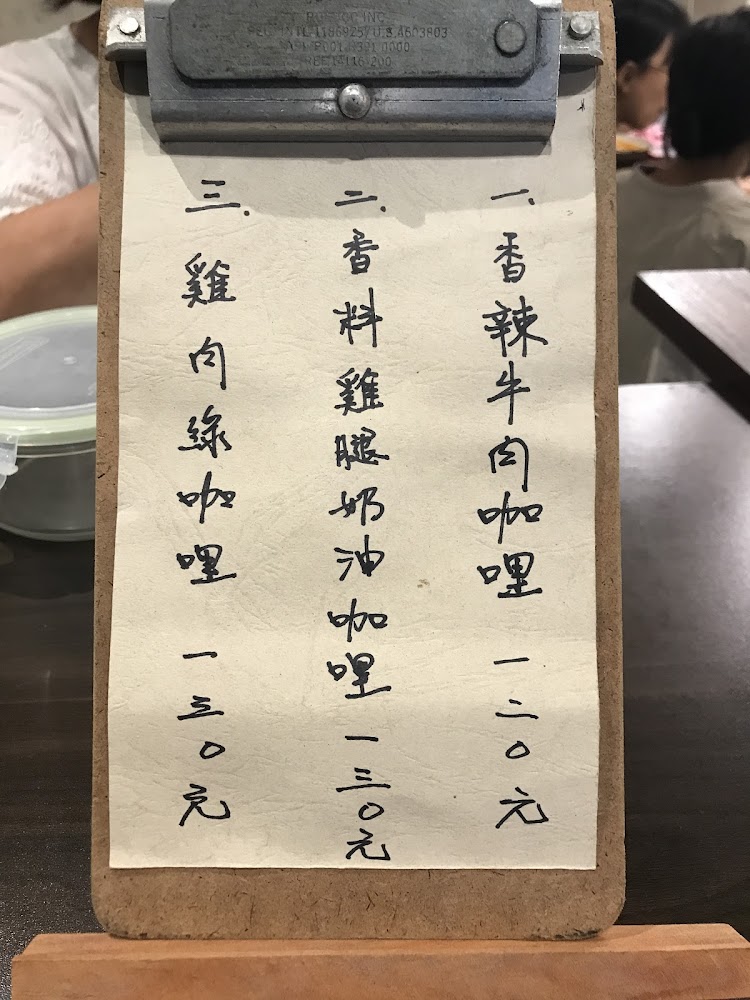 一、香辣牛肉咖哩 一二〇元
二、香料雞腿奶油咖哩 一三〇元
三、雞肉綠咖哩 一三〇元